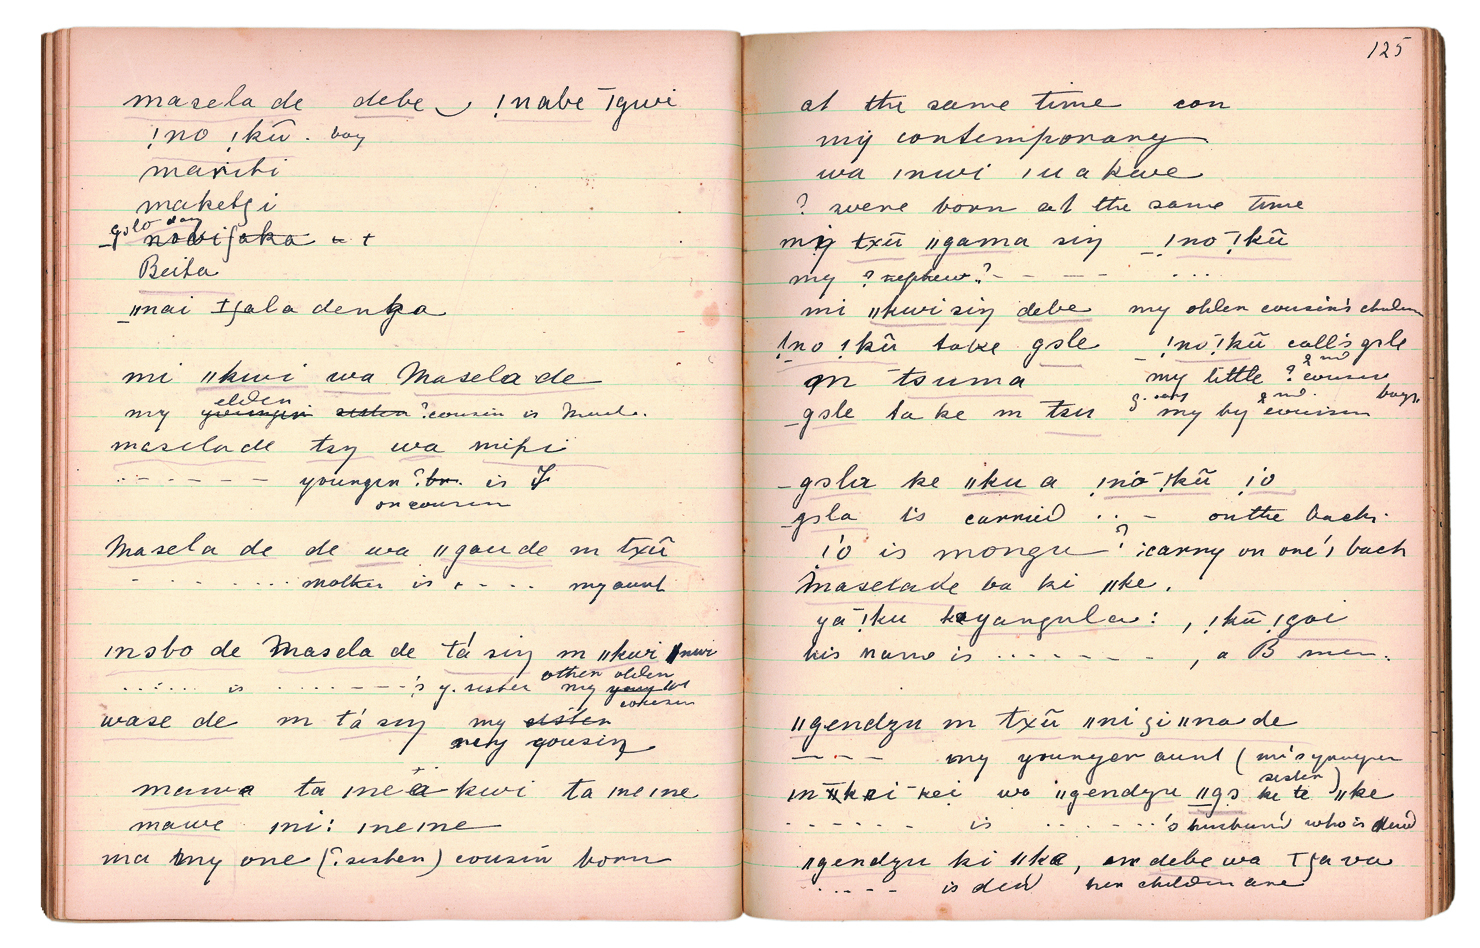 masela de debe !nabe Tgwi
!no !kū . boy
marihi
maketgi
golo day
Beita
ǁnai tʃala denga
mi ǁkwi wa Masela de
elder
my younger sister ? cousin is Mard.
maselade tsŋ wa mihi
younger ? br. is I
or cousin
Masela de de wa ǁgaude m txū
mother is my aunt
ınsbo de Masela de tá siŋ m ǁkwi
is 's y. sister my other older
cousin
wase de m tá siŋ my sister
my cousin
mawa ta ıneä kwi ta ıneıne
mawe ıni: ıneıne
ma my one (? sister) cousin born
125
at the same time con
my contemporary
wa ınwi ıu a kwe
? were born at the same time
miŋ txū ǁgama siŋ !no !kū
my ? nephew ?
mi ǁkwi siŋ debe my older cousin's children
!no !kū take gsle !no !kū calls gsle
2nd
m tsuma my little ? cousin
gsle take m tsu g. says my by 2nd cousin boys
gsla ke ǁku a !nō !kū !'o
gsla is carried on the back.
!'o is mongu ? : carry on one's back
Maselade ba ki ǁke.
ya !ku kayangula : , !kū !goi
his name is , a B man.
ǁgendzu m txū ǁni gi ǁna de
my younger aunt ( mi's younger
sister )
kei wa ǁgendzu ǁgs ke te ǁke
is 's husband who is dead
ǁgendzu ki ǁke, debe wa Tʃa va
is died her children are